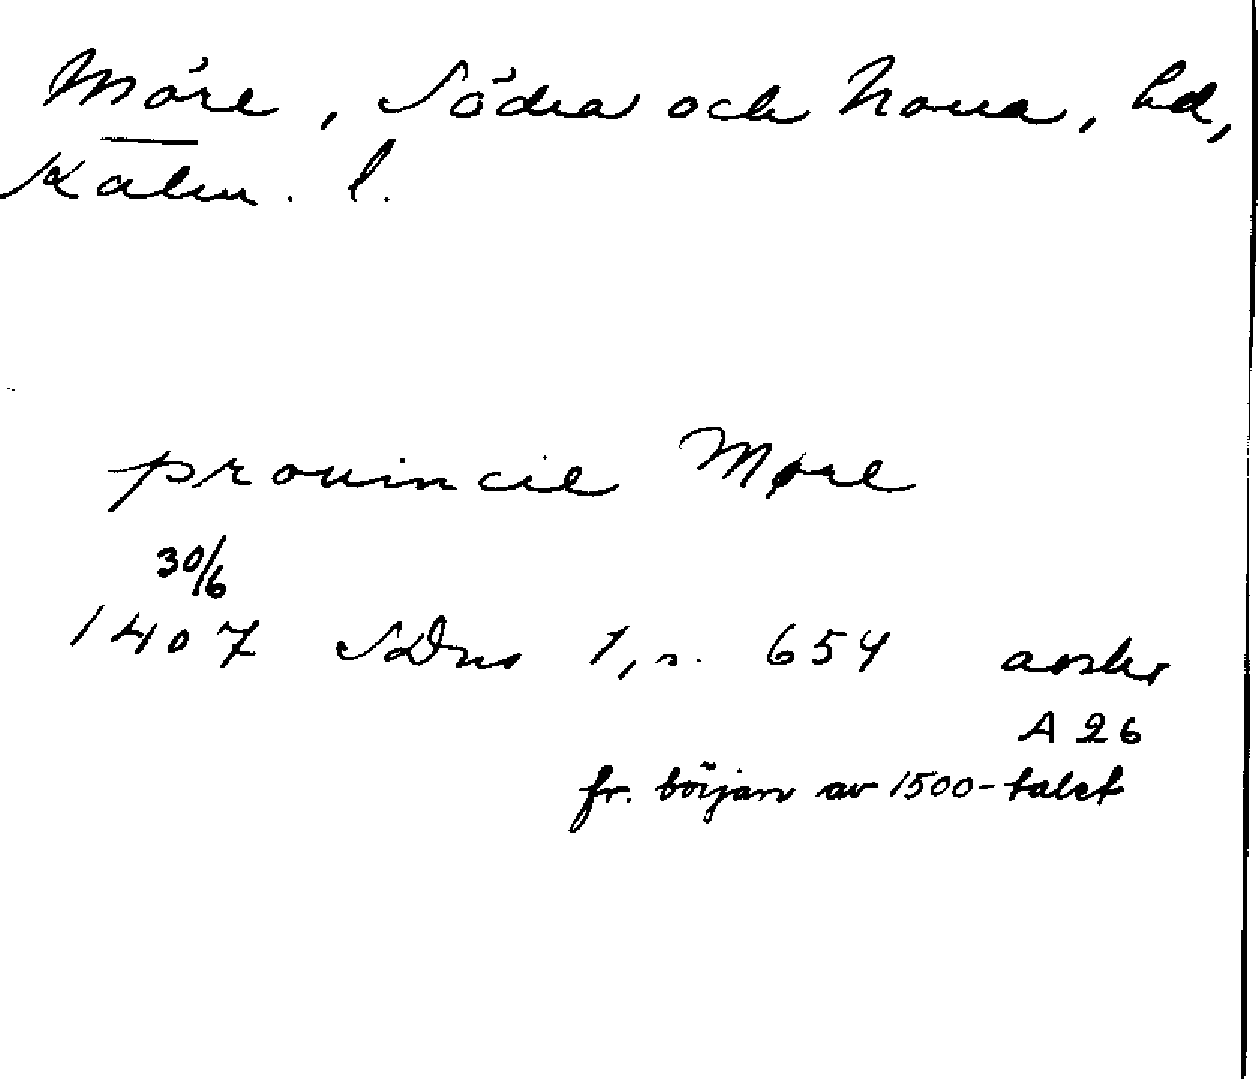 Möre, Södra och Norra, hd,
Kalm. l.
prouincie Møre
30/6
1407 SDns 1, s. 654 avskr
A 26
fr. början av 1500-talet